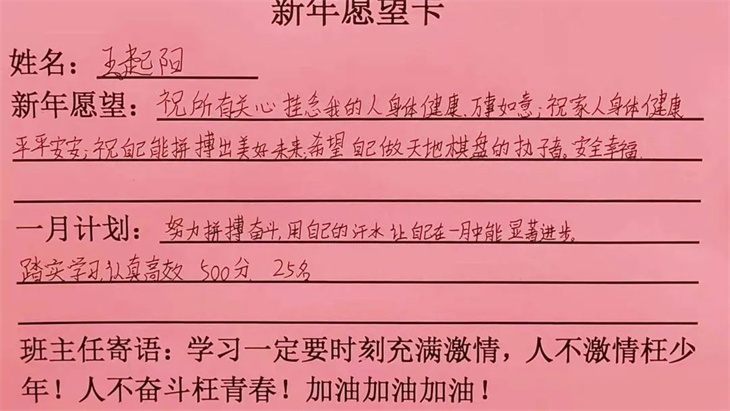 新年愿望卡
姓名：王起阳
新年愿望：祝所有关心挂念我的人身体健康、万事如意；祝家人身体健康
平平安安；祝自己能拼搏出美好未来；希望自己做天地棋盘的执子者。安全幸福
一月计划：努力拼搏奋斗，用自己的汗水让自己在一月中能显著进步。
踏实学习，认真高效 500分 25名
班主任寄语：学习一定要时刻充满激情，人不激情枉少
年！人不奋斗枉青春！加油加油加油！